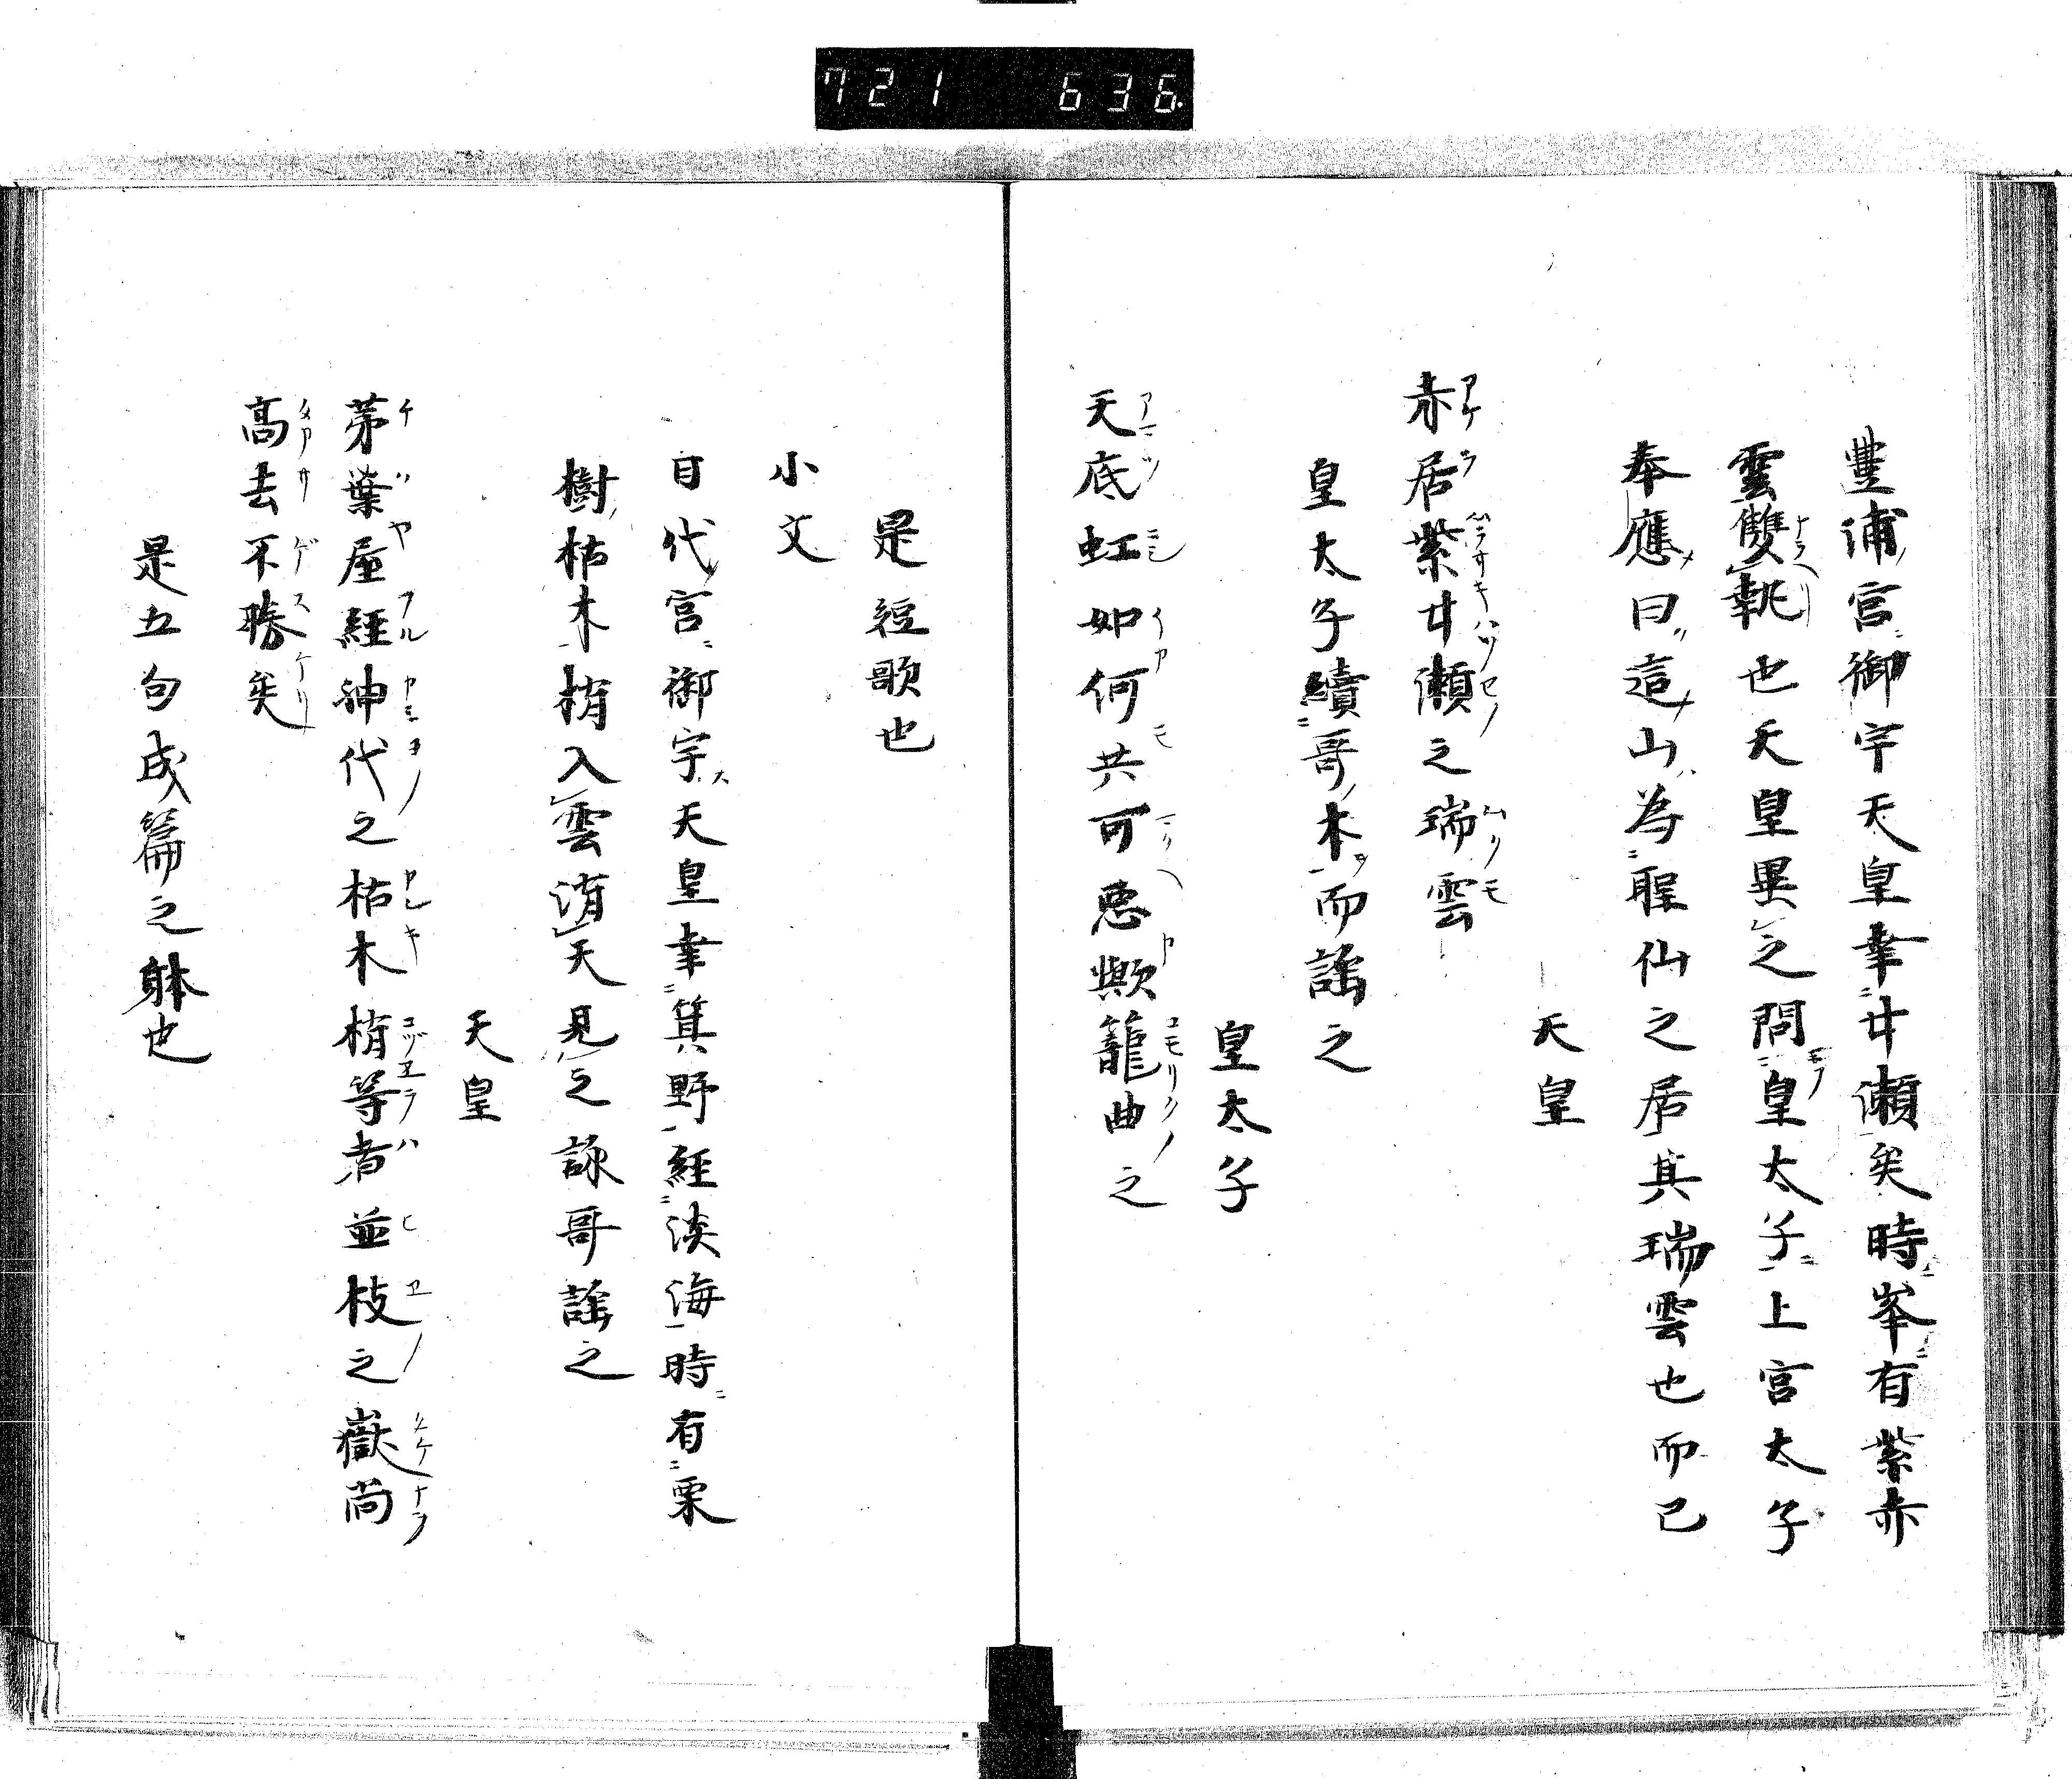 721 636
豐浦宮御宇天皇幸廿瀬矣時峯有紫赤
雲雙執也天皇異之問皇太子上宮太子
奉應曰這山為聖仙之居其瑞雲也而已
天皇
赤居紫廿瀬之瑞雲
皇太子續哥本而謡之
皇太子
天底虹如何共可忌歟籠曲之
是短歌也
小文
日代宮御宇天皇幸箕野經淡海時有栗
樹枯木梢入雲消天見之詠哥謡之
天皇
茅葉屋經神代之枯木梢等者並枝之嶽尚
高去不勝矣
是五句成篇之躰也